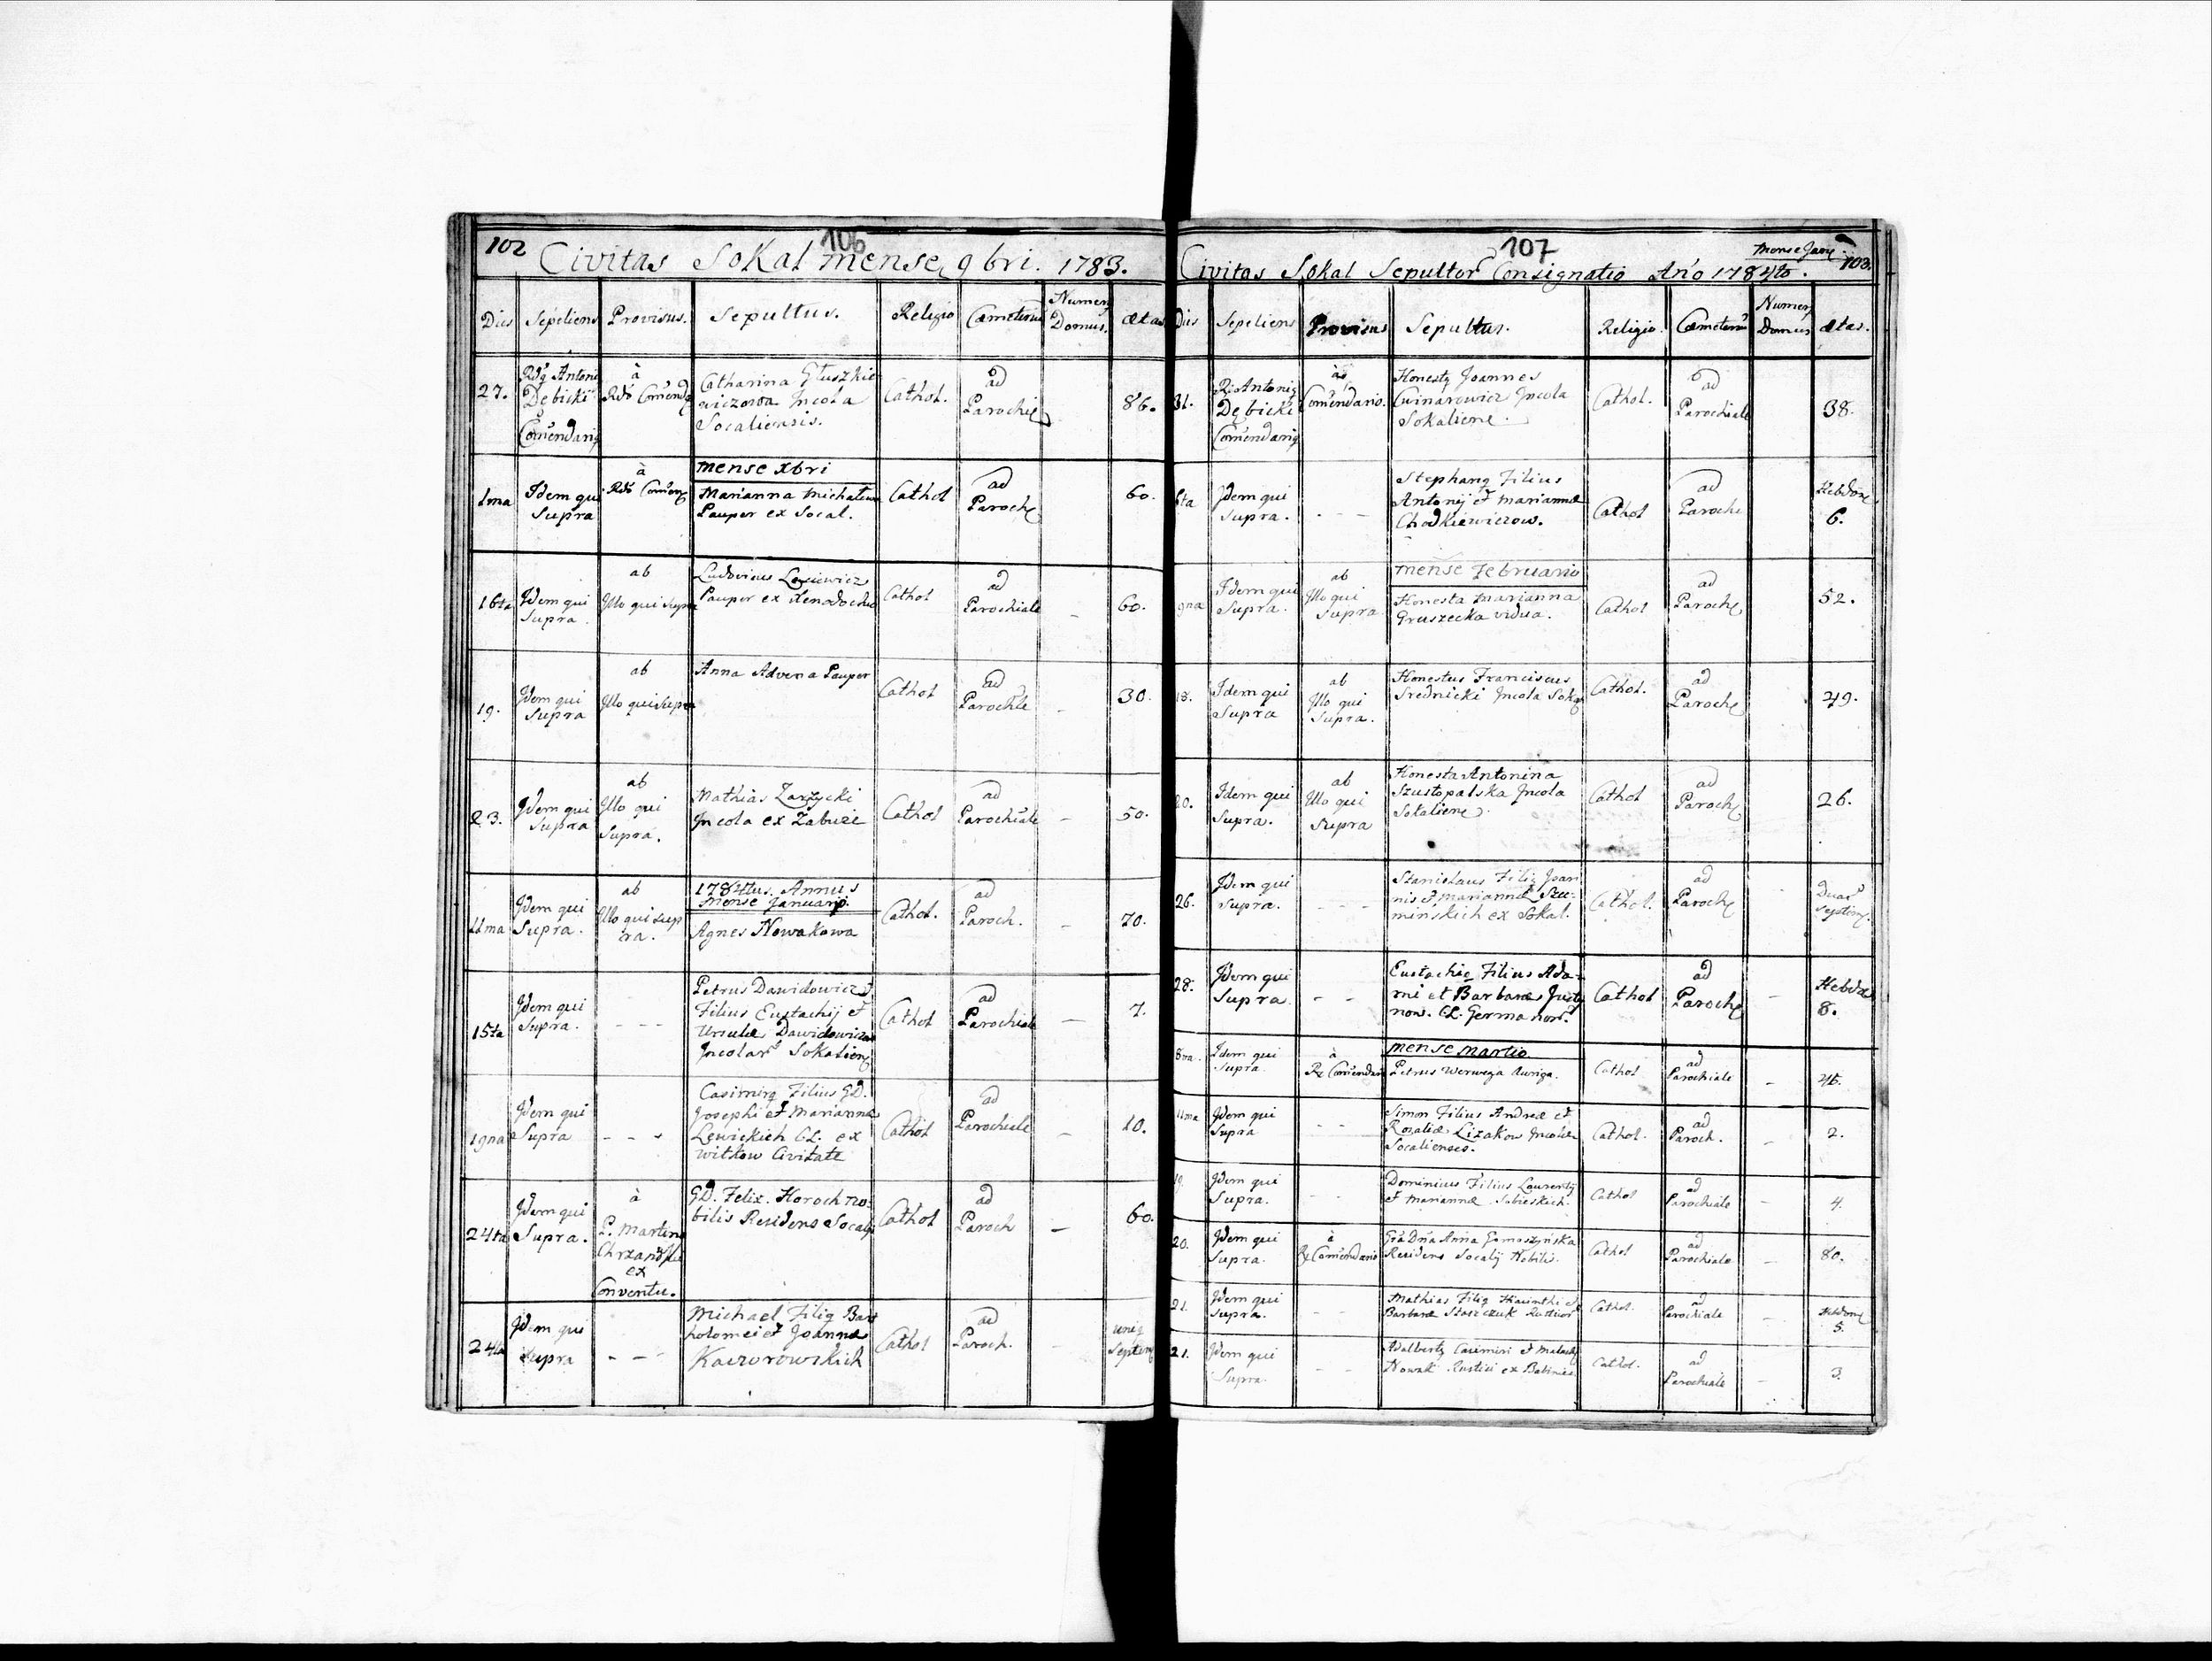 102 106
Civitas Sokal mense 9bri. 1783.
Dies Sepeliens Provisus. Sepultus. Religio Cæmeteriū Numerꝯ Domus. ætas
27. Rdꝯ Antoni Dębicki Com̄endariꝯ
à Rdō Com̄endꝯ
Catharina Głuszkie
wiczowa Incola
Socaliensis.
Cathol. ad Parochꝯ 86.
mense Xbri
1ma Idem qui Supra
à Rdō Com̄enꝯ
Marianna Michalewa
Pauper ex Socal.
Cathol ad Parochꝯ 60.
16ta Idem qui Supra
ab Illo qui Supra
Ludovicus
Pauper ex Xenodochio
Cathol ad Parochiale - 60.
19. Idem qui Supra
ab Illo qui Supra
Anna Advena Pauper
Cathol ad Parochle - 30.
23. Idem qui Supra
ab Illo qui Supra.
Mathias Zarzycki
Incola ex Zabuże
Cathol ad Parochiale - 50.
1784tus. Annus
Mense Januarij.
11ma Idem qui Supra.
ab Illo qui Sup
ra.
Agnes Nowakowa
Cathol. ad Paroch. - 70.
15ta Idem qui Supra.
- - -
Petrus Dawidowicz
Filius Eustachij et
Ursulæ Dawidowiczow
Incolar Sokalienꝯ
Cathol ad Parochiale - 7.
19na Idem qui Supra
- - -
Casimirꝯ Filius GD.
Josephi et Marianna
Lewickich CL. ex
Witkow Civitate
Cathol ad Parochiale - 10.
24ta Idem qui Supra.
à P. Martino ex Conventu.
GD. Felix. Horoch no-
bilis Residens Socalꝯ
Cathol ad Paroch - 60.
24ta Idem qui Supra
- - -
Michael Filiꝯ Bar
holomei et Joannæ
Kaczorowskich
Cathol ad Paroch. uniꝯ Septimꝯ
107
Mense Janꝯ 103.
Civitas Sokal Sepultor Consignatio An̄o 1784to.
Dies Sepeliens Provisus Sepultus. Religio. Cæmeteriū Numerꝯ Domus ætas.
31. Rꝯ Antoniꝯ Dębicki Com̄endariꝯ
à Com̄endario.
Honestꝯ Joannes
Incola
Sokaliene.
Cathol. ad Parochiale 38.
6ta Idem qui Supra.
- - -
Stephanꝯ Filius
Antonij et Mariannæ
Chodkiewiczow.
Cathol ad Paroch Hebdom
6.
mense Februario
9na Idem qui Supra.
ab Illo qui Supra
Honesta Marianna
Gruszecka vidua.
Cathol ad Parochꝯ 52.
18. Idem qui Supra
ab Illo qui Supra.
Honestus Franciscus
Srednicki Incola Sokaꝯ
Cathol. ad Parochꝯ 49.
20. Idem qui Supra.
ab Illo qui Supra
Honesta Antonina
Szustopalska Incola
Sokaliene.
Cathol ad Parochꝯ 26.
26. Idem qui Supra.
- - -
Stanislaus Filiꝯ Joan
nis et Mariannæ Szu-
minskich ex Sokal.
Cathol. ad Parochꝯ Duar Septimꝯ.
28. Idem qui Supra.
- -
Eustachiꝯ Filius Ada-
mi et Barbaræ
now. CL. Germanor.
Cathol ad Parochꝯ - Hebdo
8.
mense Martio
8va. Idem qui Supra
à Rꝯ Com̄endario
Petrus Werwega Auriga.
Cathol ad Parochiale - 46.
11ma Idem qui Supra
- - -
Simon Filius Andreæ et
Rosaliæ Lizakow Incolæ
Socalienses.
Cathol. ad Paroch. - 2.
19. Idem qui Supra.
- -
Dominicus Filius Laurentij
et Mariannæ Sobieskich.
Cathol ad Parochiale - 4.
20. Idem qui Supra.
à Rꝯ Com̄endario
Anna Gomoszyńska
Residens Socalij Nobilis.
Cathol ad Parochiale - 80.
21. Idem qui Supra.
- -
Mathias Filiꝯ Hiacinthi et
Barbaræ Stasiczuk Rusticor
Cathol. ad Parochiale - Hebdom
5.
21. Idem qui Supra.
- -
Adalbertꝯ Casimiri et
Nowak Rustici ex
Cathol. ad Parochiale - 3.